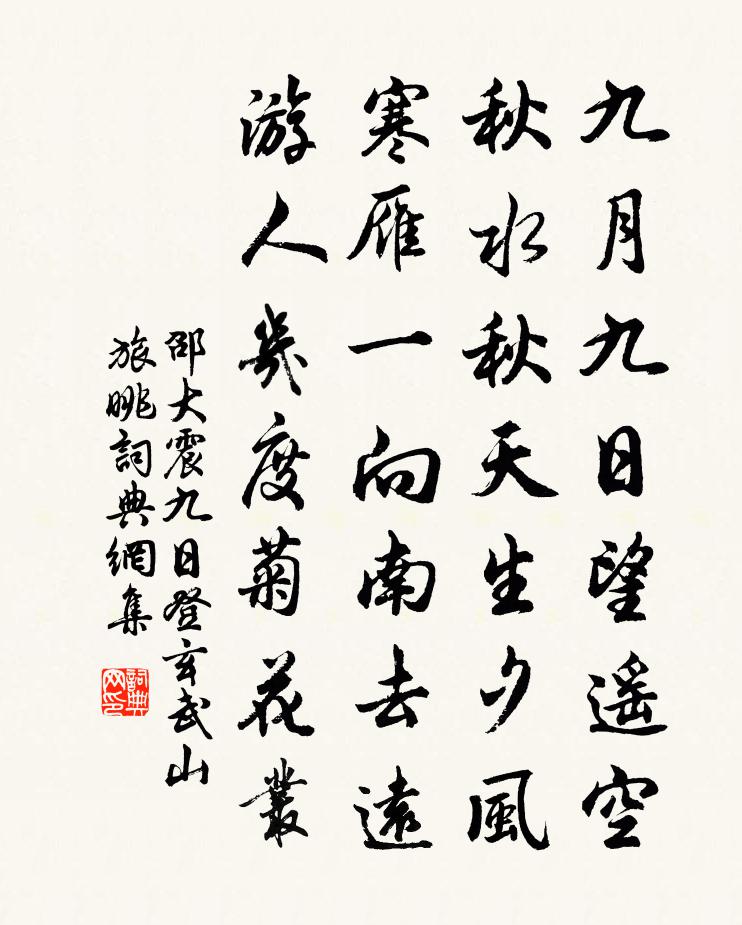 九月九日望遥空
秋水秋天生夕風
寒雁一向南去遠
游人幾度菊花叢
邵大震九日登玄武山
旅眺詞典網集
詞典网印